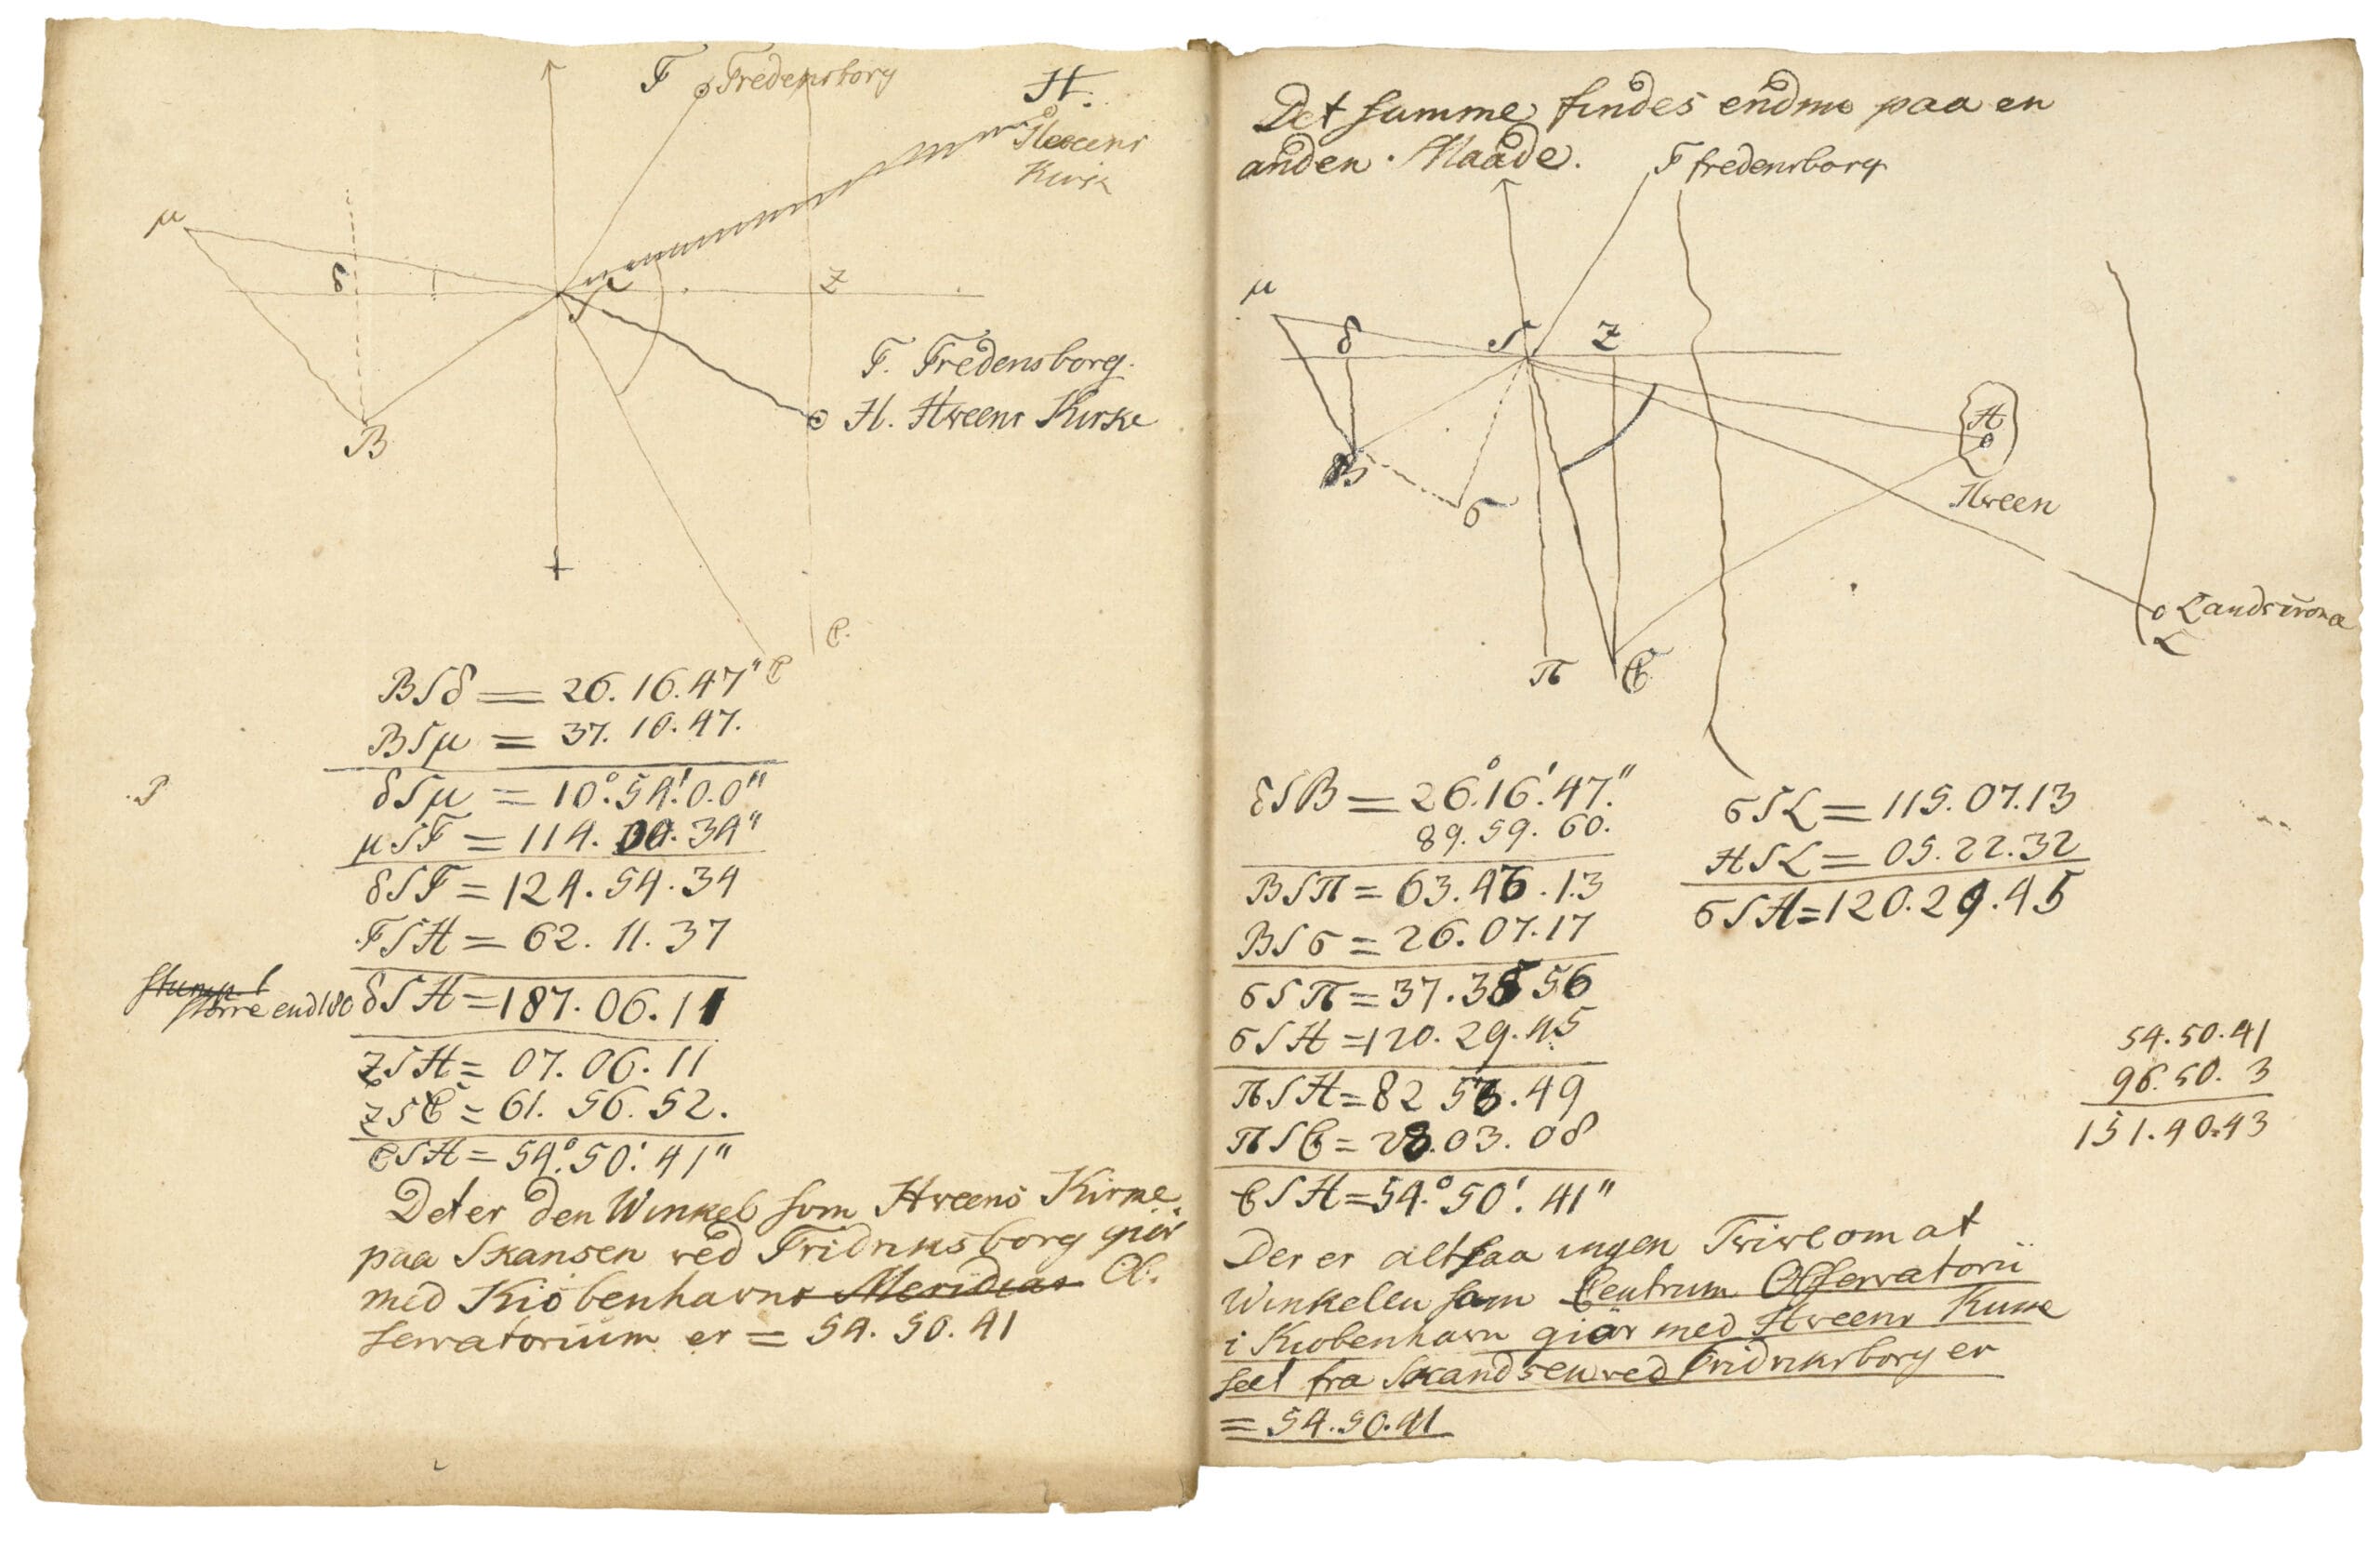 F Fredensborg
H.
Hveens
Kirk
μ
δ
S
Z
F. Fredensborg.
H. Hveens Kirke
B
C.
C
BSδ = 26.16.47"
BSμ = 37.10.47.
δSμ = 10°.54'.0.0"
μSF = 114.00.34"
δSF = 124.54.34
FSH = 62.11.37
større end 180 δSH = 187.06.11
ZSH = 07.06.11
ZSC = 61.56.52.
CSH = 54°.50'.41"
Det er den Winkel som Hveens Kirke
paa Skansen ved Fridriksborg giör
med Kiöbenhavns Meridian Ob:
servatorium er = 54.50.41
Det samme findes endnu paa en
anden Maade.
F fredensborg
μ
δ
S
Z
H
B
σ
Hween
π
C
Landscrona
L
δSB = 26°.16'.47."
89.59.60.
BSπ = 63.43.13
BSσ = 26.07.17
σSπ = 37.35.56
σSH = 120.29.45
πSH = 82.53.49
πSC = 28.03.08
CSH = 54.°50'.41"
σSL = 115.07.13
HSL = 05.22.32
σSH = 120.29.45
54.50.41
96.50.3
151.40.43
Der er altsaa ingen Twivl om at
Winkelen som Centrum Observatorii
i Kiobenhavn giör med Hveens Kirke
seet fra Skandsen ved Fridriksborg er
= 54.50.41